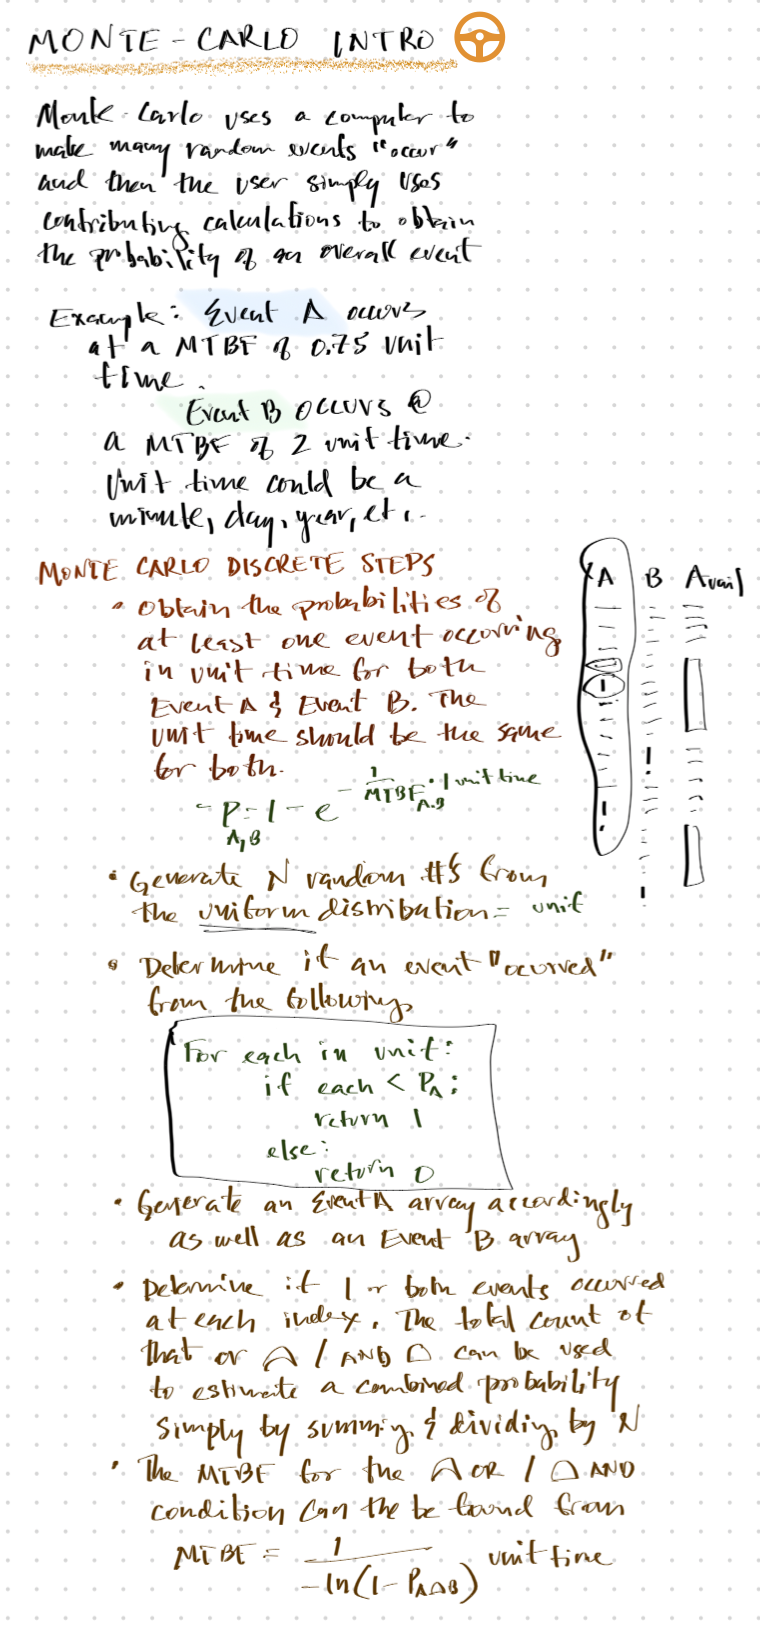 MONTE-CARLO INTRO
Monte-Carlo uses a computer to
make many random events "occur"
and then the user simply uses
contributing calculations to obtain
the probability of an overall event
Example: Event A occurs
at a MTBF of 0.75 unit
time.
Event B occurs @
a MTBF of 2 unit time.
Unit time could be a
minute, day, year, etc..
MONTE CARLO DISCRETE STEPS
A B Avail
• Obtain the probabilities of
at least one event occurring
in unit time for both
Event A & Event B. The
unit time should be the same
for both.
- P A,B = 1 - e - 1/MTBF A,B · 1 unit time
• Generate N random #'s from
the uniform distribution = unit
• Determine if an event "ocurred"
from the following
For each in unit:
if each < PA:
return 1
else:
return 0
• Generate an Event A array accordingly
as well as an Event B array
• Determine if 1 or both events occurred
at each index. The total count of
that or / AND can be used
to estimate a combined probability
simply by summing & dividing by N
• The MTBF for the OR / AND
condition can the be found from
MTBF = 1 / -ln(1 - P) unit time